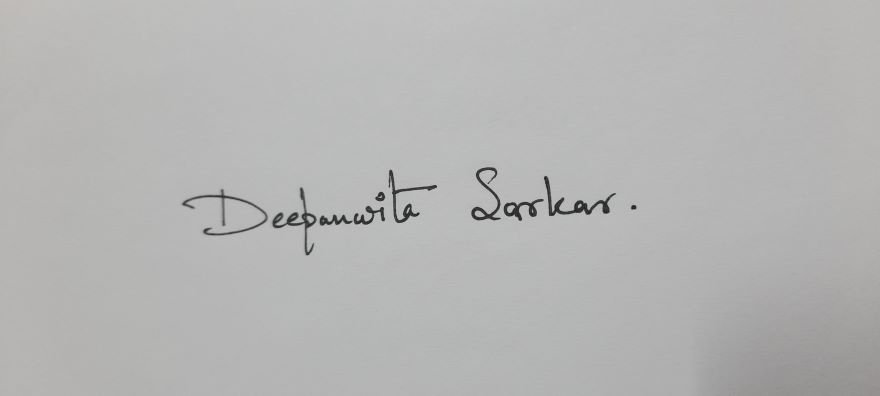 Deepanwita Sarkar.